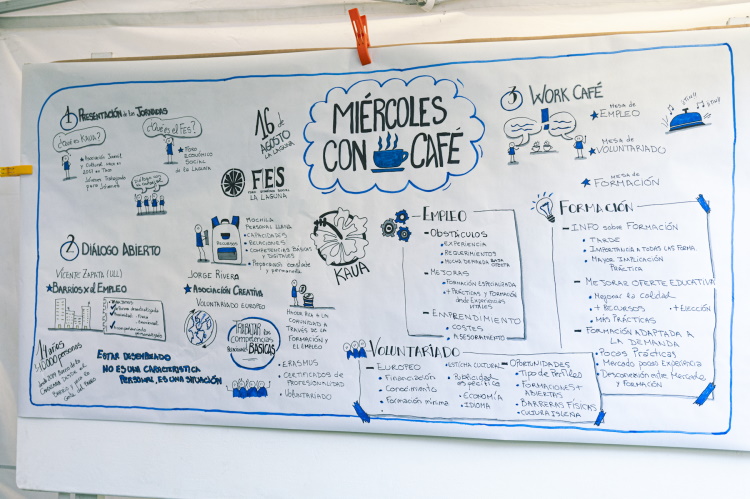 MIÉRCOLES
CON CAFÉ
16 de
AGOSTO
LA LAGUNA
FES
FORO ECONÓMICO SOCIAL
LA LAGUNA
KAUA
1 PRESENTACIÓN de las JORNADAS
¿Qué es KAUA?
¿Qué el FES?
Asociación Juvenil
y Cultural
2017 en Taco
Jóvenes Trabajando
para Jóvenes
FORO
ECONÓMICO
SOCIAL
DE LA LAGUNA
2 DIÁLOGO ABIERTO
VICENTE ZAPATA (ULL)
BARRIOS X el EMPLEO
14 años
ESTAR DESEMPLEADO
NO ES UNA CARACTERÍSTICA
PERSONAL, ES UNA SITUACIÓN
RECURSOS
MOCHILA
PERSONAL LLENA
• CAPACIDADES
• RELACIONES
• COMPETENCIAS BÁSICAS
Y DIGITALES
• Preparación constante
y permanente
JORGE RIVERO
ASOCIACIÓN CREATIVA
VOLUNTARIADO EUROPEO
TRABAJAR las
competencias
BÁSICAS
HACER RED + LA
COMUNIDAD A
TRAVÉS DE LA
FORMACIÓN
Y EL EMPLEO
• ERASMUS
• CERTIFICADOS DE
PROFESIONALIDAD
• VOLUNTARIADO
3 WORK CAFÉ
MESA DE
EMPLEO
MESA DE
VOLUNTARIADO
MESA DE
FORMACIÓN
EMPLEO
- OBSTÁCULOS
• EXPERIENCIA
• REQUERIMIENTOS
• MUCHA DEMANDA BAJA OFERTA
- MEJORAS
• FORMACIÓN ESPECIALIZADA
• + PRÁCTICAS Y FORMACIÓN
DESDE EXPERIENCIAS
VITALES
- EMPRENDIMIENTO
• COSTES
• ASESORAMIENTO
VOLUNTARIADO
- EUROPEO
• Financiación
• Conocimiento
• Formación mínima
- SISTEMA CULTURAL
• Publicidad
específica
• ECONOMÍA
• IDIOMA
- OPORTUNIDADES
• Tipo de Perfiles
• FORMACIONES +
ABIERTAS
• BARRERAS FÍSICAS
• CULTURA ISLEÑA
FORMACIÓN
- INFO sobre FORMACIÓN
• TARDE
• IMPORTANCIA A TODAS LAS FORMA.
• MAYOR IMPLICACIÓN
PRÁCTICA
- MEJORAR OFERTE EDUCATIVA
• Mejorar la calidad
• + RECURSOS • + ELECCIÓN
• MÁS PRÁCTICAS
- FORMACIÓN ADAPTADA A
LA DEMANDA
• POCAS PRÁCTICAS
• Mercado pocas EXPERIENCIA
• DESCONEXIÓN ENTRE Mercado
Y FORMACIÓN